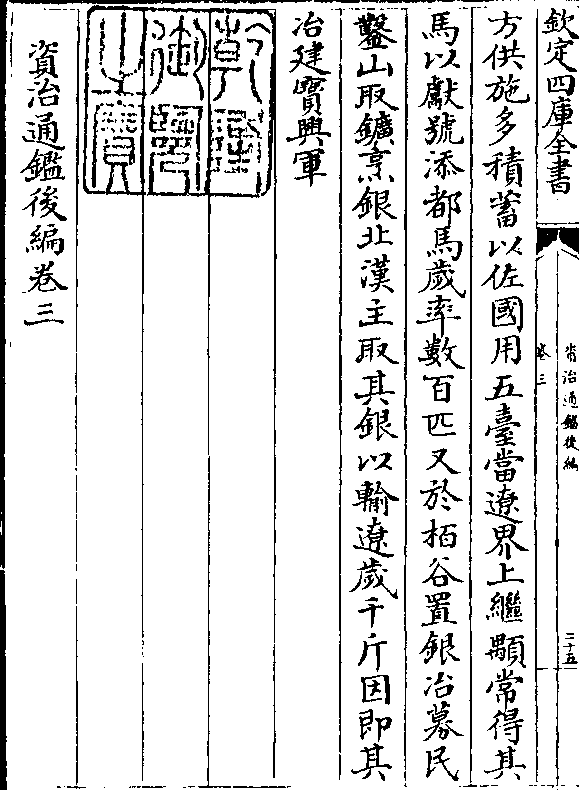 欽定四庫全書
資治通鑑後編
卷三
二十五
方供施多積蓄以佐國用五臺當遼界上繼顒常得其
馬以獻號添都馬歲率數百匹又於栢谷置銀冶募民
鑿山取鑛烹銀北漢主取其銀以輸遼歲千斤因即其
冶建寶興軍
乾隆御覽之寶
資治通鑑後編卷三